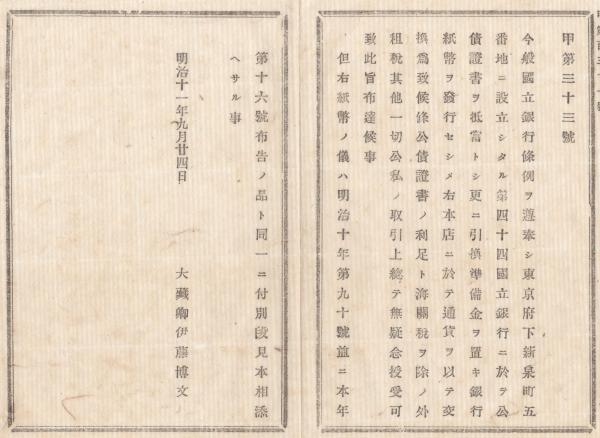 甲第三十三號
今般國立銀行條例ヲ遵奉シ東京府下新泉町五
番地ニ設立シタル第四十四國立銀行ニ於テ公
債證書ヲ抵當トシ更ニ引換準備金ヲ置キ銀行
紙幣ヲ發行セシメ右本店ニ於テ通貨ヲ以テ交
換爲致候條公債證書ノ利足ト海關稅ヲ除ノ外
租稅其他一切公私ノ取引上總テ無疑念授受可
致此旨布達候事
但右紙幣ノ儀ハ明治十年第九十號並ニ本年
第十六號布告ノ品ト同一ニ付別段見本相添
ヘサル事
明治十一年九月廿四日
大藏卿伊藤博文